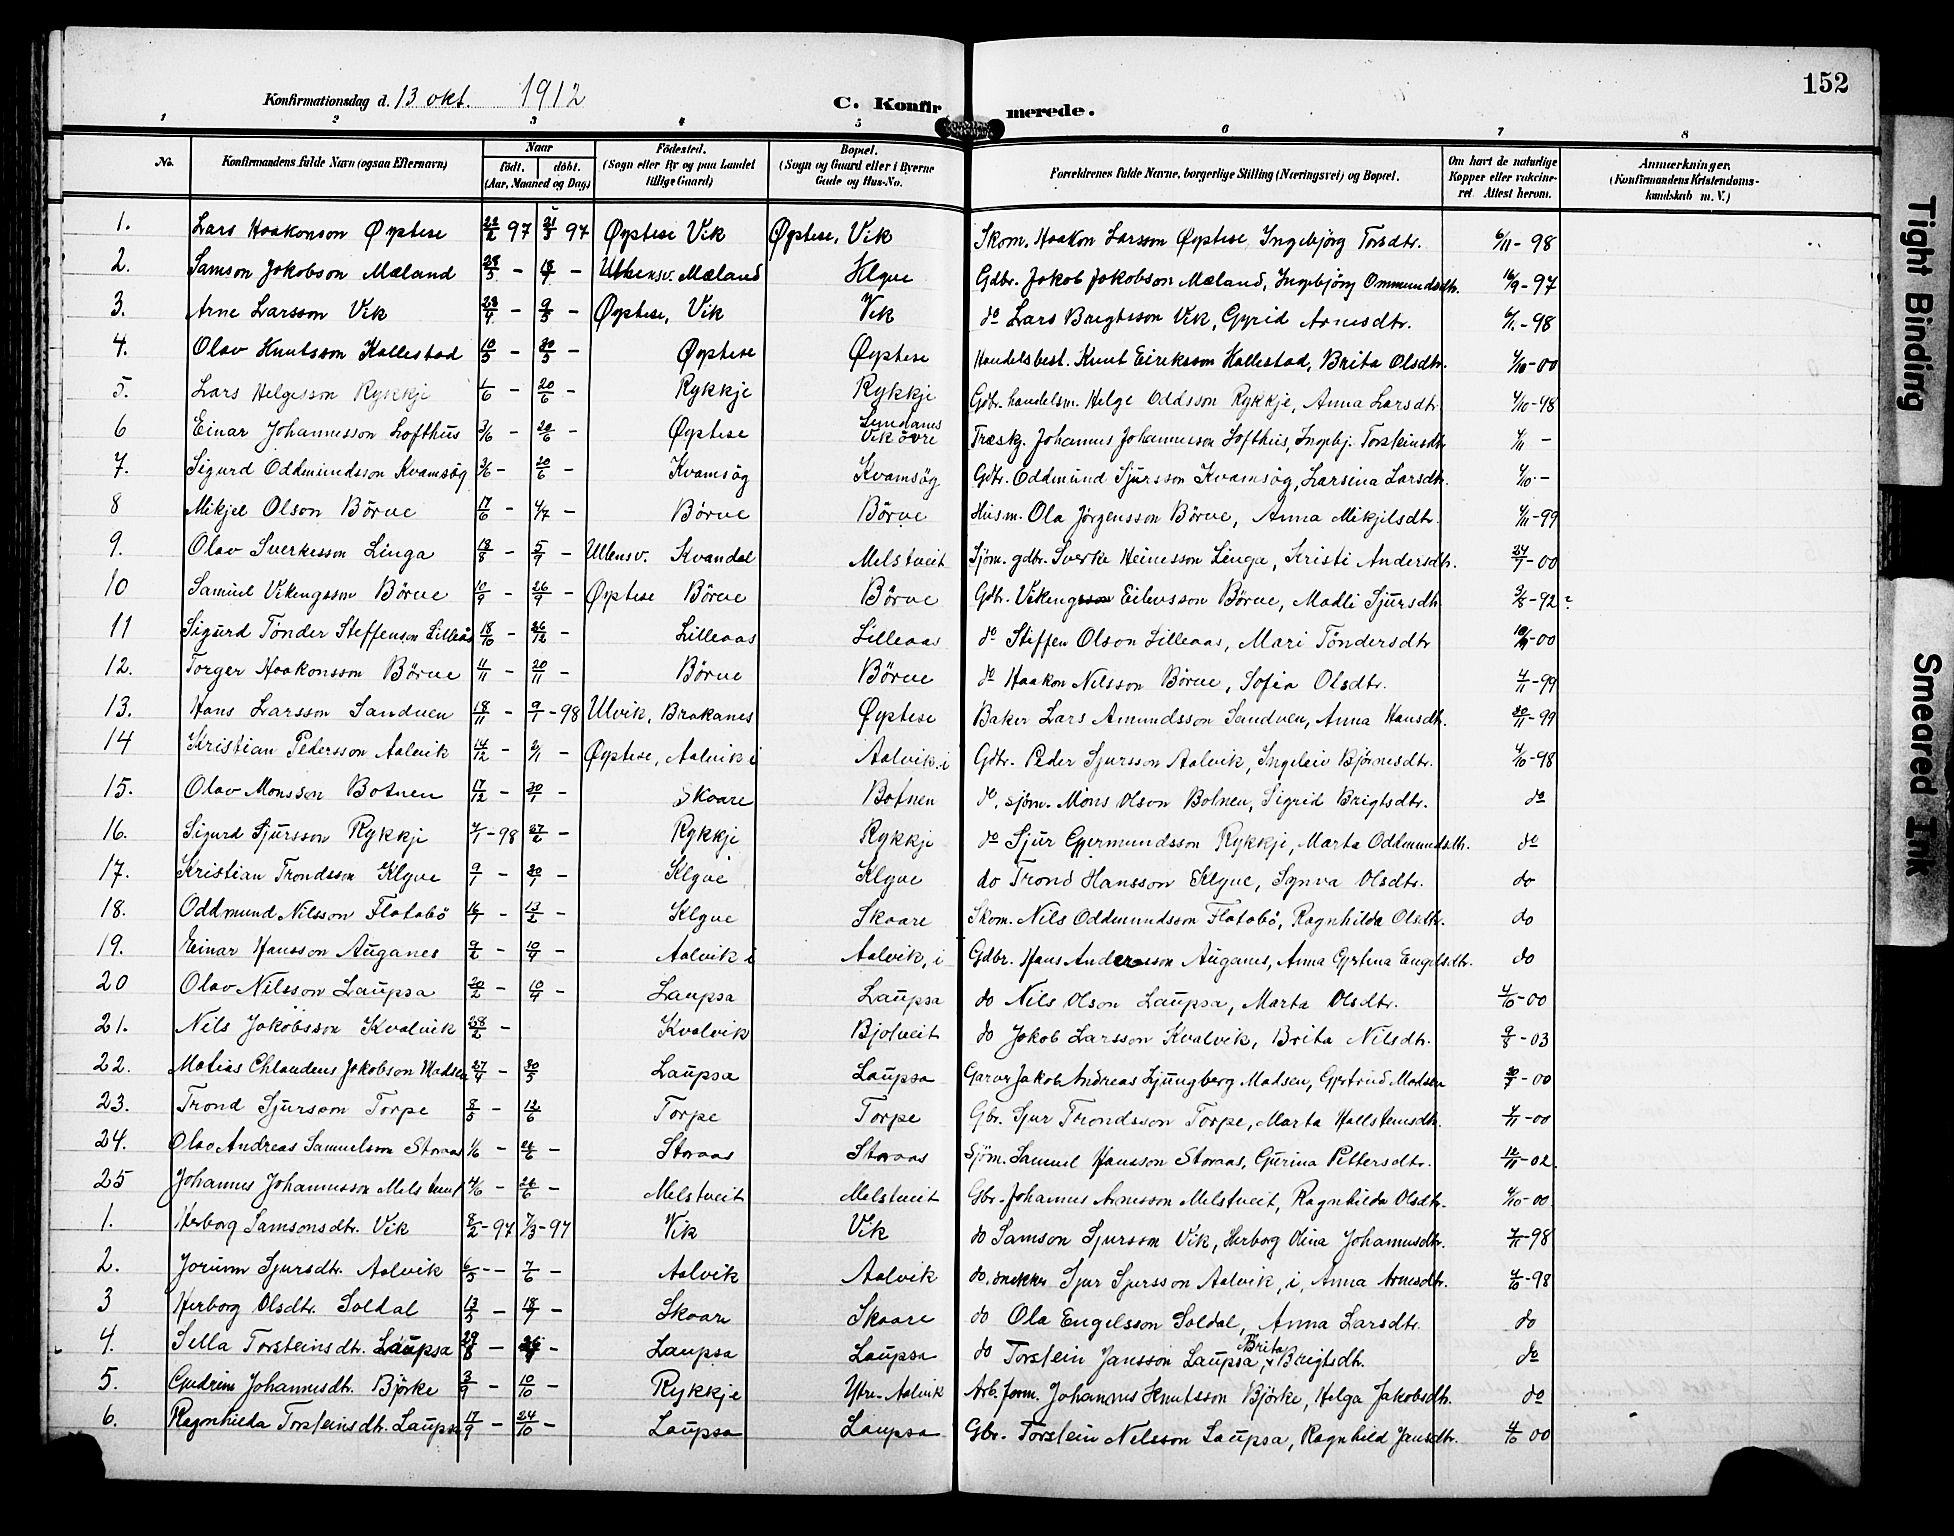 152
Konfirmationsdag d. 13 okt. 1912
C. Konfirmerede.
1 2 3 4 5 6 7 8
No. Konfirmandens fulde Navn (ogsaa Efternavn) Naar født. døbt. (Aar, Maaned og Dag) Fødested. (Sogn eller By og paa Landet tillige Gaard) Bopæl. (Sogn og Gaard eller i Byerne Gade og Hus-No. Forældrenes fulde Navne, borgerlige Stilling (Næringsvei) og Bopæl. Om havt de naturlige Kopper eller vakcineret. Attest herom. Anmærkninger. (Konfirmandens Kristendomskundskab m. V.)
1. Lars Haakonson Øystese 22/2 97 21/3 97 Øystese Vik Øystese, Vik Skom. Haakon Larsson Øystese Ingebjørg Torsdtr. 6/11-98
2. Samson Jakobson Mæland 28/3 - 18/4 - Ullensv. Mæland Klyve Gdbr. Jakob Jakobson Mæland, Ingebjörg Ommundsdtr. 16/9-97
3. Arne Larsson Vik 23/4 - 9/5 - Øystese, Vik Vik do Lars Brigtsson Vik, Gyrid Arnesdtr. 6/11-98
4. Olav Knutsson Kallestad 10/5 - 30/5 - Øystese Øystese Handelsbest. Knut Eiriksson Kallestad, Brita Olsdtr. 4/10-00
5. Lars Helgesson Rykkje 1/6 - 20/6 - Rykkje Rykkje Gdbr. handelsm. Helge Oddsson Rykkje, Anna Larsdtr. 4/10-98
6 Einar Johannesson Lofthus 3/6 - 20/6 - Øystese Vik övre Træsk. Johannes Johannesson Lofthus, Ingebj. Torsteinsdtr 4/11 -
7. Sigurd Oddmundsson Kvamsög 3/6 - 20/6 - Kvamsög Kvamsög Gdbr. Oddmund Sjursson Kvamsög, Larsina Larsdtr. 4/10 -
8 Mikjel Olson Börve 17/6 - 4/7 - Börve Börve Husm. Ola Jörgensson Börve, Anna Mikjelsdtr. 4/11-99
9. Olav Sverkesson Linga 18/8 - 5/9 - Ullensv. Kvandal Melstveit Sjöm. gdbr. Sverke Heinesson Linga, Kristi Andersdtr. 24/7-00
10 Samuel Vikingsson Börve 10/9 - 26/9 - Øystese Börve Börve Gdbr. Vikingsson Eilevsson Börve, Madli Sjursdtr. 3/8-92?
11 Sigurd Tönder Steffenson Lilleås 18/10 - 26/12 - Lilleaas Lilleaas do Steffen Olson Lilleaas, Mari Töndersdtr -00
12. Torger Haakonsson Börve 11/11 - 20/11 - Börve Börve do Haakon Nilsson Börve, Sofia Olsdtr. 4/11-99
13. Hans Larsson Sandven 18/11 - 9/1-98 Ulvik, Brakanes Øystese Baker Lars Amundsson Sandven, Anna Hansdtr. 30/11-99
14 Kristian Pedersson Aalvik 14/12 - 2/1 - Øystese, Aalvik i Aalvik. i Gdbr. Peder Sjursson Aalvik, Ingeleiv Björnesdtr. 4/10-98
15. Olav Monsson Botnen 17/12 - 30/1 - Skaare Botnen do, sjöm. Mons Olson Botnen, Sigrid Brigtsdtr. do
16. Sigurd Sjursson Rykkje 4/1-98 27/2 - Rykkje Rykkje do Sjur Gjermundsson Rykkje, Marta Oddmundsdtr. do
17. Kristian Trondsson Klyve 9/1 - 30/1 - Klyve Klyve do Trond Hansson Klyve, Synva Olsdtr. do
18. Oddmund Nilsson Flotabö 16/1 - 13/2 - Klyve Skaare Skom. Nils Oddmundsson Flatabö, Ragnhilda Olsdtr. do
19. Einar Hansson Auganes 9/2 - 10/4 - Aalvik i Aalvik, i Gdbr. Hans Anderson Auganes, Anna Gjertina Engelsdtr. do
20 Olav Nilsson Laupsa 20/2 - 10/4 - Laupsa Laupsa do Nils Olson Laupsa, Marta Olsdtr. 4/10-00
21. Nils Jakobsson Kvalvik 28/2 - Kvalvik Bjolveit do Jakob Larsson Kvalvik, Brita Nilsdtr. 9/8-03
22. Matias Chlaudius Jakobson Madsen 27/4 - 30/5 Laupsa Laupsa Garver Jakob Andreas Ljungberg Madsen, Gjertrud Madsen 30/7-00
23. Trond Sjursson Torpe 8/5 - 12/6 Torpe Torpe Gbr. Sjur Trondsson Torpe, Marta Hallsteinsdtr. 4/11-00
24. Olav Andreas Samuelson Storaas 1/6 - 26/6 - Storaas Storaas Sjöm. Samuel Hansson Storaas, Gurina Pettersdtr. 12/11-02.
25 Johannes Johannesson Melstveit 4/6 - 26/6 - Melstveit Melstveit Gbr. Johannes Arnesson Melstveit, Ragnhilda Olsdtr. 4/10-00
1. Herborg Samsonsdtr. Vik 8/2-97 7/3-97 Vik Vik do Samson Sjursson Vik, Herborg Olina Johannesdtr. 4/11-98
2. Jorunn Sjursdtr. Aalvik 6/5 - 7/6 - Aalvik Aalvik do, snekker Sjur Sjursson Aalvik, i, Anna Arnesdtr. 4/10-98
3 Herborg Olsdtr. Soldal 13/5 - 18/7 - Skaare Skaare do Ola Engelsson Soldal, Anna Larsdtr. do
4. Sella Torsteinsdtr. Laupsa 29/8 - - Laupsa Laupsa do Torstein Jansson Laupsa, Brita Brigtsdtr. do
5. Gudrun Johannesdtr. Björke 3/9 - 10/10 - Rykkje Ytre-Aalvik Arb. form. Johannes Knutsson Björke, Helga Jakobsdtr. do
6. Ragnhilda Torsteinsdtr. Laupsa 17/9 - 24/10 - Laupsa Laupsa Gbr. Torstein Nilsson Laupsa, Ragnhild Jansdtr. 4/10 00
Tight Binding
Smeared Ink